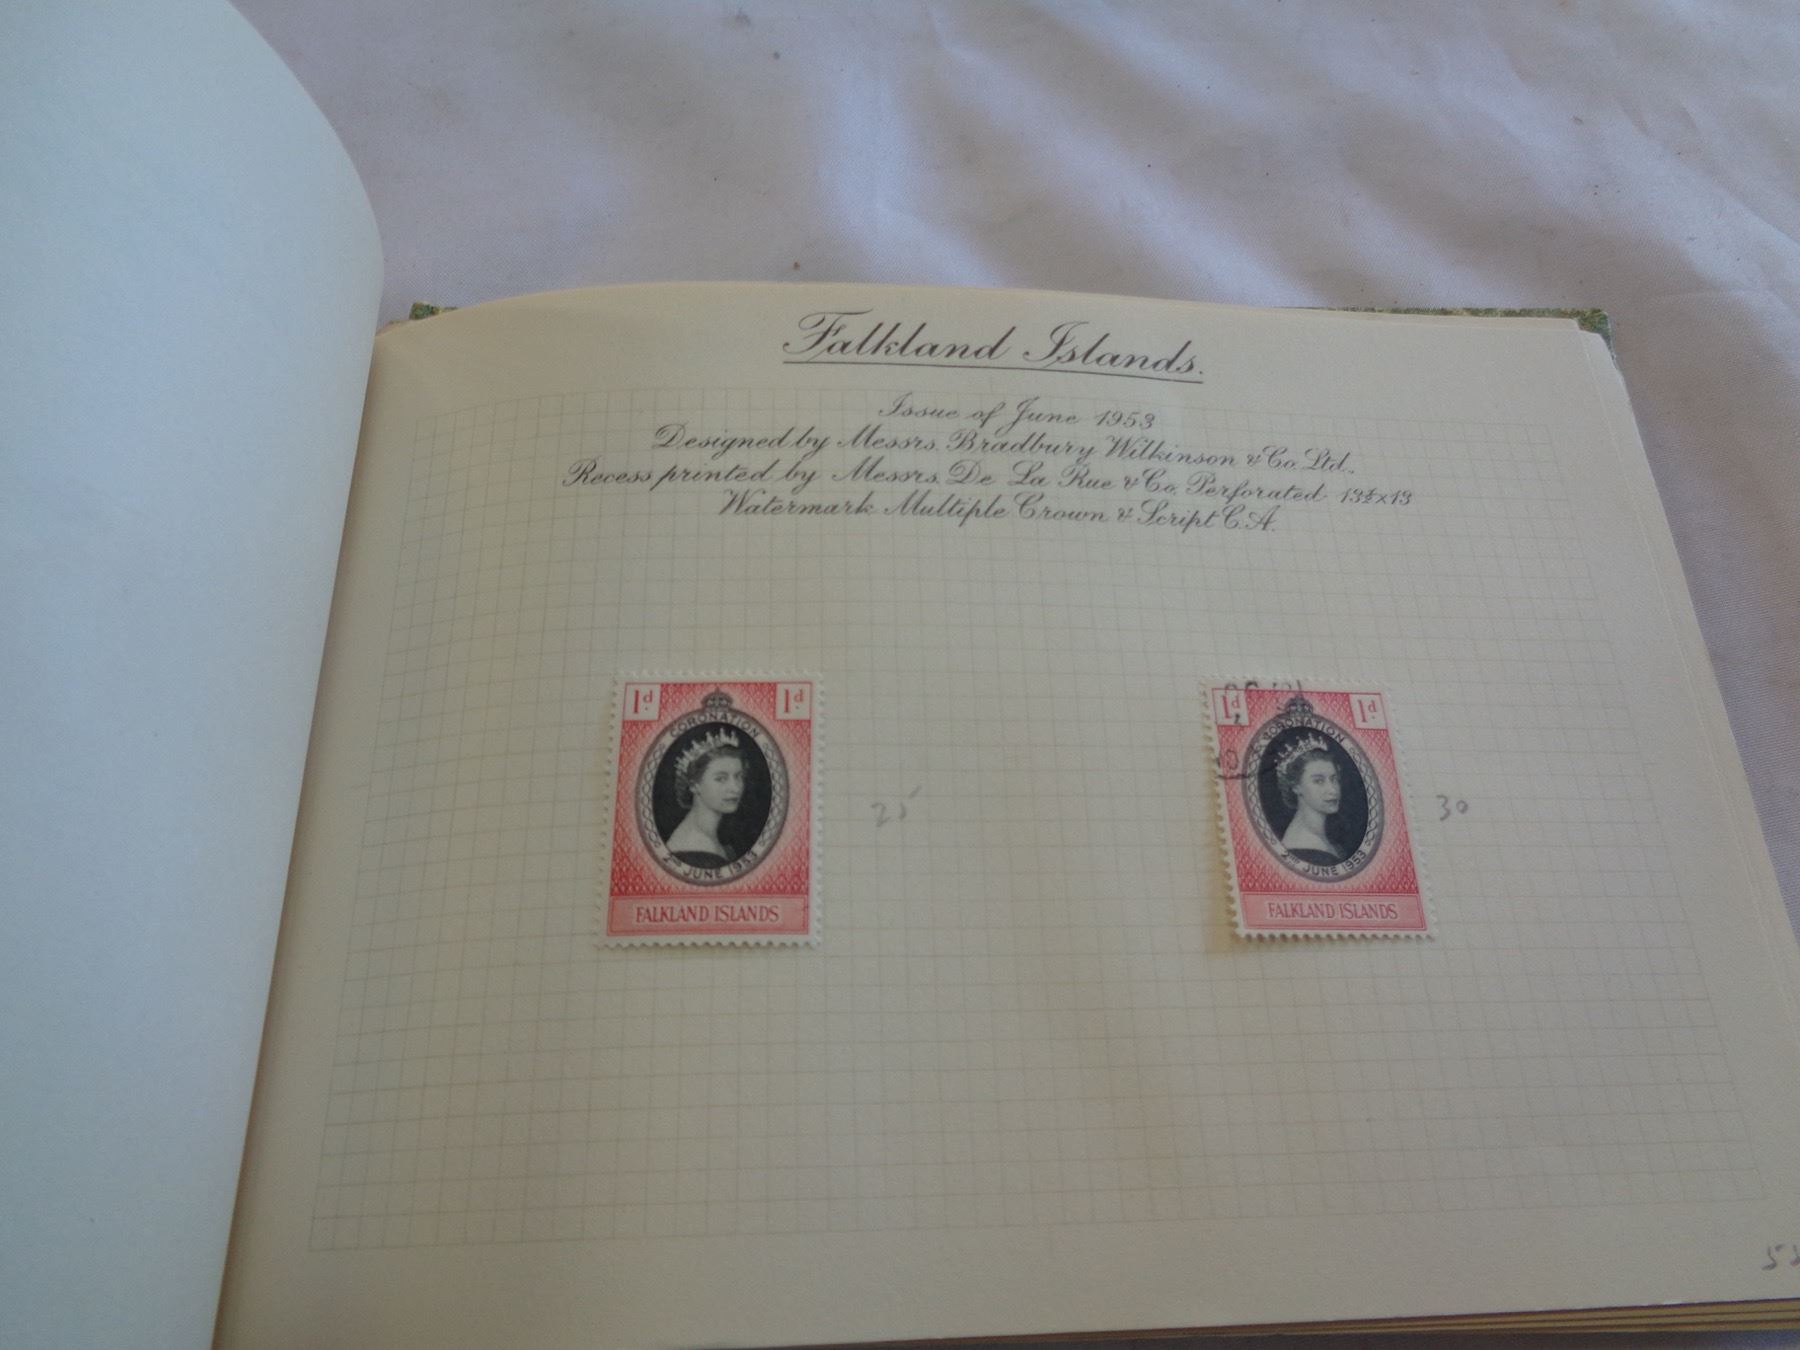 Falkland Islands.
Issue of June 1953
Designed by Messrs. Bradbury Wilkinson & Co. Ltd.,
Recess printed by Messrs. De La Rue & Co. Perforated 13½x13
Watermark Multiple Crown & Script C.A.
1d. 1d.
CORONATION
2ND JUNE 1953
FALKLAND ISLANDS
25
1d. 1d.
CORONATION
2ND JUNE 1953
FALKLAND ISLANDS
30